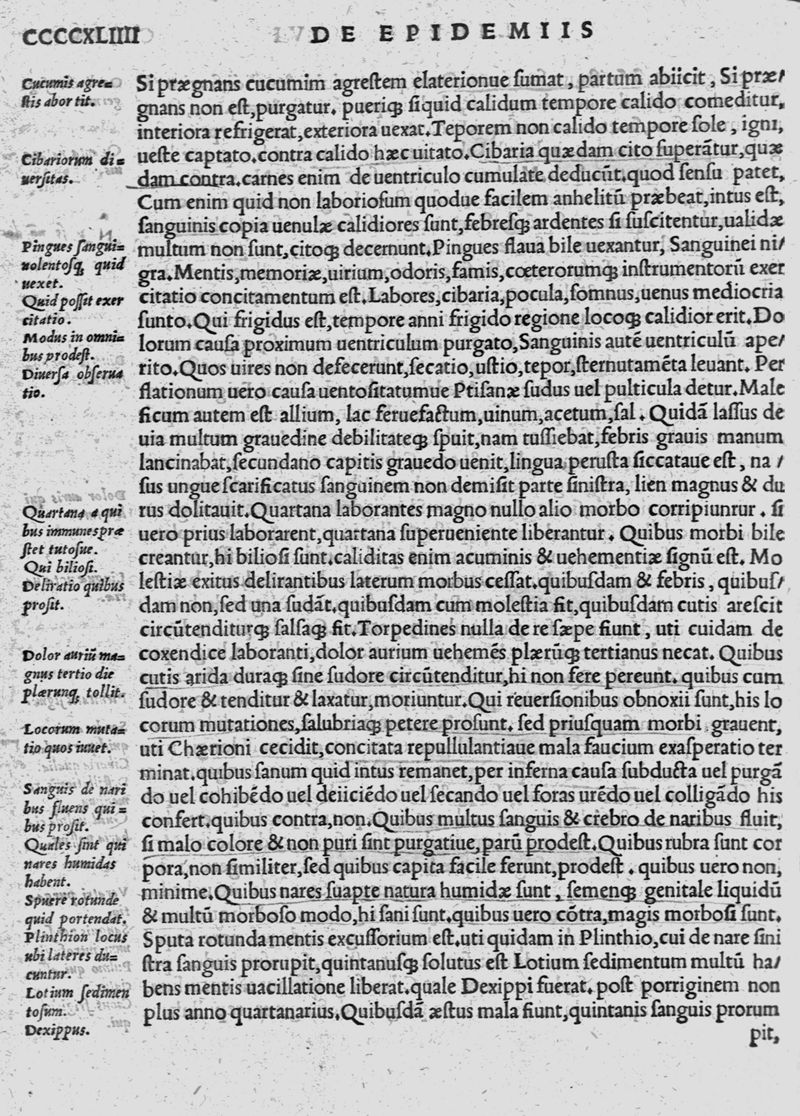 CCCCXLIIII DE EPIDEMIIS
Cucumis agre=
stis abortit.
Cibariorum di=
uersitas.
Pingues sangui=
nolentosq́; quid
uexet.
Quid possit exer
citatio.
Modus in omni=
bus prodest.
Diuersa obserua
tio.
Quartana a qui
bus immunes præ
stet tutosue.
Qui biliosi.
Deliratio quibus
prosit.
Dolor auriũ ma=
gnus tertio die
plærunq; tollit.
Locorum muta=
tio quos iuuet.
Sanguis de nari
bus fluens qui=
bus prosit.
Quales sint qui
nares humidas
habent.
Spuere rotunde
quid portendat.
Plinthion locus
ubi lateres du=
cuntur.
Lotium sedimen
tosum.
Dexippus.
Si prægnans cucumim agreſtem elaterionue ſumat, partum abiicit, Si præ/
gnans non eſt, purgatur. pueriq; ſiquid calidum tempore calido comeditur,
interiora refrigerat, exteriora uexat. Teporem non calido tempore ſole, igni,
ueſte captato. contra calido hæc uitato. Cibaria quædam cito ſuperãtur, quæ
dam contra. carnes enim de uentriculo cumulate deducũt. quod ſenſu patet,
Cum enim quid non laborioſum quodue facilem anhelitũ præbeat, intus eſt,
ſanguinis copia uenulæ calidiores ſunt, febreſq; ardentes ſi ſuſcitentur, ualidæ
multum non ſunt, citoq; decernunt. Pingues flaua bile uexantur, Sanguinei ni/
gra. Mentis, memoriæ, uirium, odoris, famis, cœterorumq; inſtrumentorũ exer
citatio concitamentum eſt. Labores, cibaria, pocula, ſomnus, uenus mediocria
ſunto. Qui frigidus eſt, tempore anni frigido regione locoq; calidior erit. Do
lorum cauſa proximum uentriculum purgato, Sanguinis autẽ uentriculũ ape/
rito. Quos uires non defecerunt, ſecatio, uſtio, tepor, ſternutamẽta leuant. Per
flationum uero cauſa uentoſitatumue Ptiſanæ ſudus uel pulticula detur. Male
ficum autem eſt allium, lac feruefactum, uinum, acetum, ſal. Quidã laſſus de
uia multum grauedine debilitateq; ſpuit, nam tuſſiebat, febris grauis manum
lancinabat, ſecundano capitis grauedo uenit, lingua peruſta ſiccataue eſt, na /
ſus ungue ſcarificatus ſanguinem non demiſit parte ſiniſtra, lien magnus & du
rus dolitauit. Quartana laborantes magno nullo alio morbo corripiunrur. ſi
uero prius laborarent, quartana ſuperueniente liberantur. Quibus morbi bile
creantur, hi bilioſi ſunt. caliditas enim acuminis & uehementiæ ſignũ eſt. Mo
leſtiæ exitus delirantibus laterum morbus ceſſat. quibuſdam & febris, quibuſ/
dam non, ſed una ſudãt. quibuſdam cum moleſtia fit, quibuſdam cutis areſcit
circũtenditurq; ſalſaq; fit. Torpedines nulla de re ſæpe fiunt, uti cuidam de
coxendice laboranti, dolor aurium uehemẽs plærũq; tertianus necat. Quibus
cutis arida duraq; ſine ſudore circũtenditur, hi non fere pereunt. quibus cum
ſudore & tenditur & laxatur, moriuntur. Qui reuerſionibus obnoxii ſunt, his lo
corum mutationes, ſalubriaq; petere proſunt. ſed priuſquam morbi grauent,
uti Chærioni cecidit, concitata repullulantiaue mala faucium exaſperatio ter
minat. quibus ſanum quid intus remanet, per inferna cauſa ſubducta uel purgã
do uel cohibẽdo uel deiiciẽdo uel ſecando uel foras urẽdo uel colligãdo his
confert. quibus contra, non. Quibus multus ſanguis & crebro de naribus fluit,
ſi malo colore & non puri ſint purgatiue, parũ prodeſt. Quibus rubra ſunt cor
pora, non ſimiliter, ſed quibus capita facile ferunt, prodeſt. quibus uero non,
minime. Quibus nares ſuapte natura humidæ ſunt, ſemenq; genitale liquidũ
& multũ morboſo modo, hi ſani ſunt. quibus uero cõtra, magis morboſi ſunt.
Sputa rotunda mentis excuſſorium eſt. uti quidam in Plinthio, cui de nare ſini
ſtra ſanguis prorupit, quintanuſq; ſolutus eſt Lotium ſedimentum multũ ha/
bens mentis uacillatione liberat. quale Dexippi fuerat. poſt porriginem non
plus anno quartanarius. Quibuſdã æſtus mala fiunt, quintanis ſanguis prorum
pit,